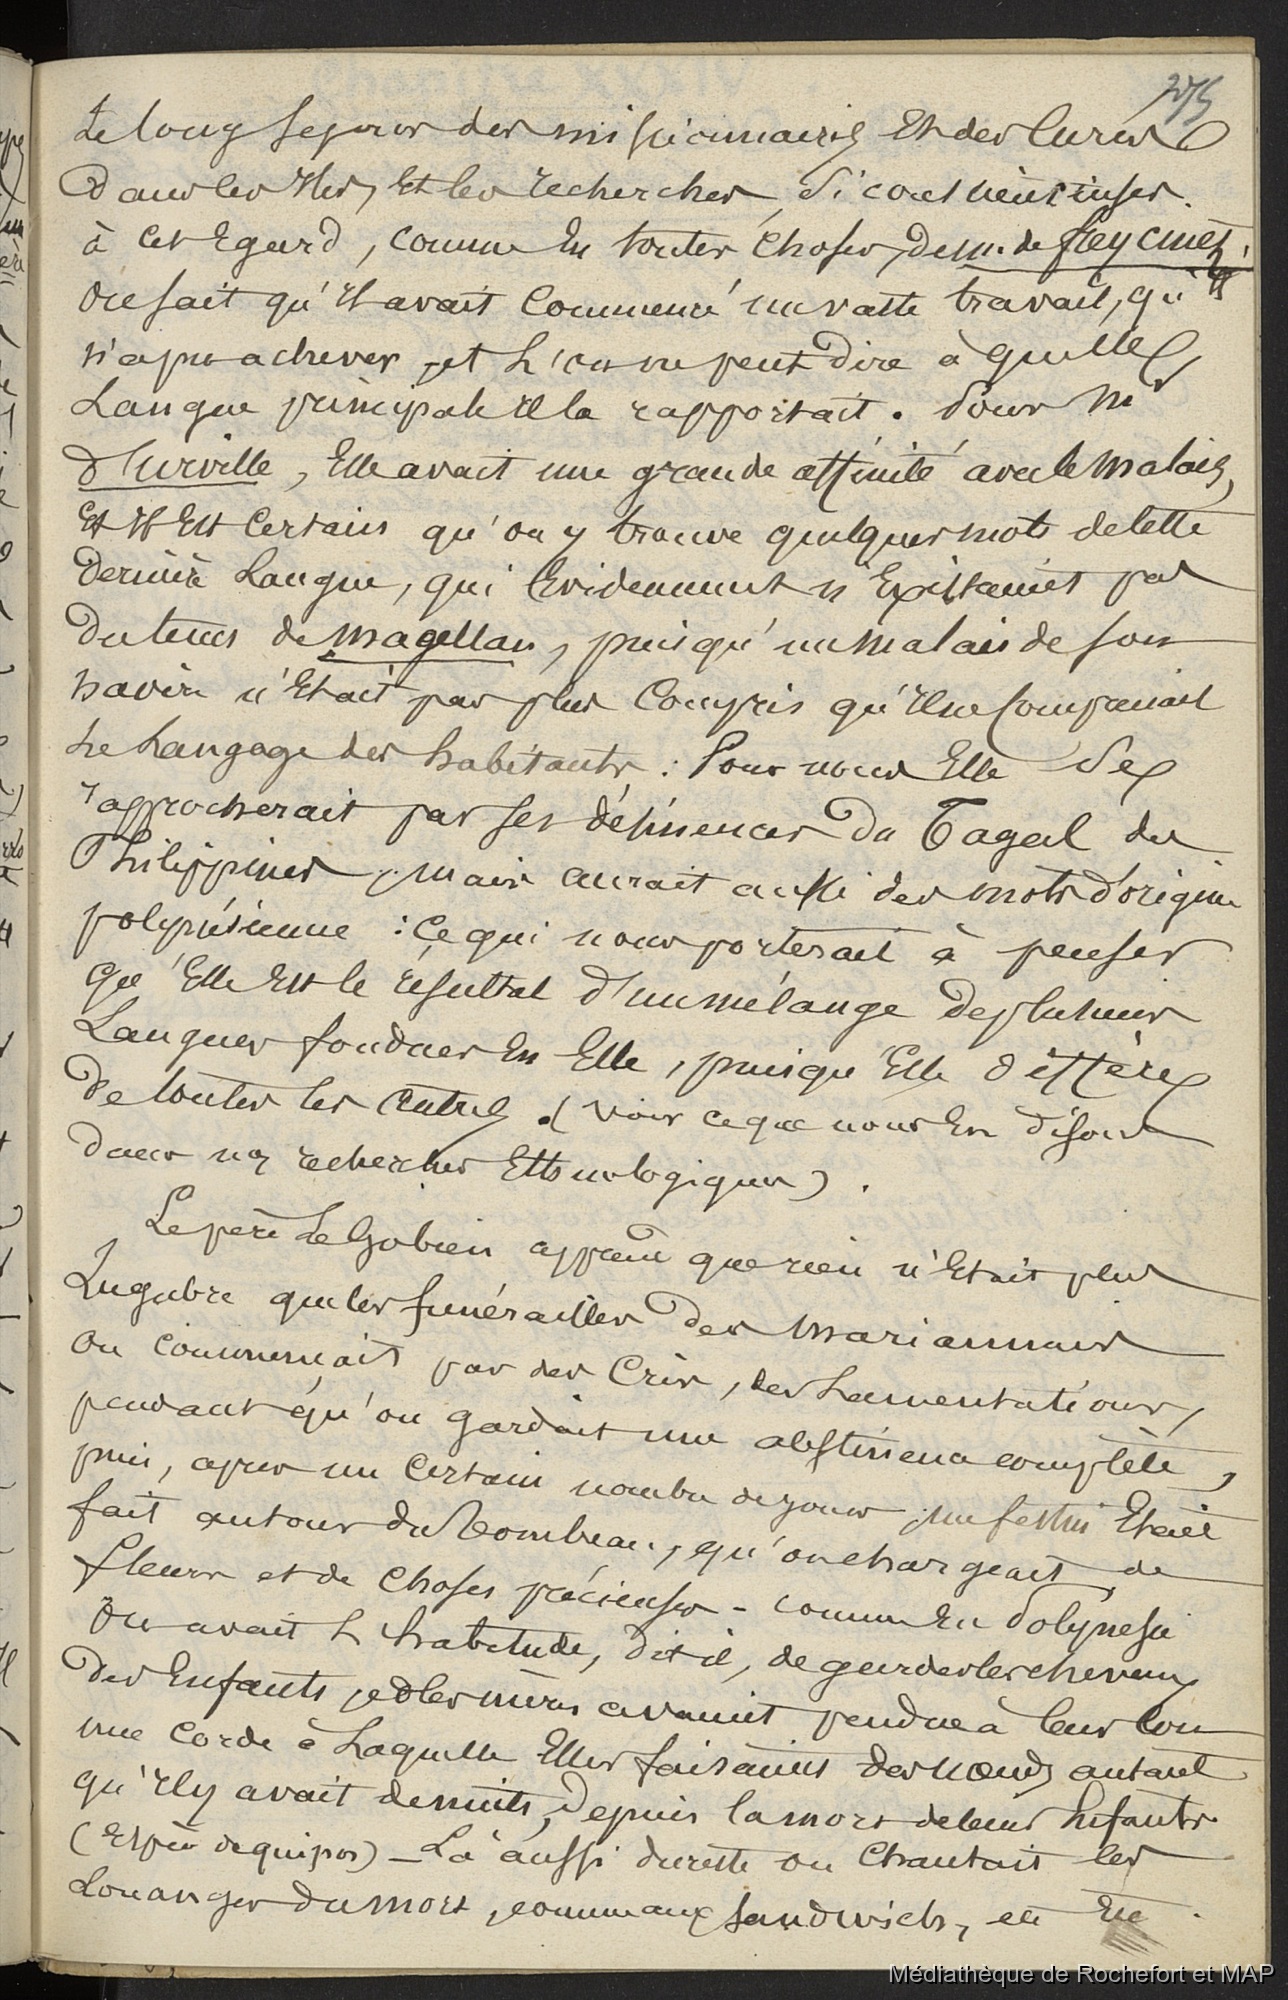 275
Le long sejour des missionnaires et des curés
dans les Iles, et les recherches, si consciencieuses
à cet egard, comme en toutes choses, de m. de freycinet.
on sait qu'il avait commencé un vaste travail, qu'il
n'a pu achever, et l'on ne peut dire à quelle
Langue principale il la rapportait. Pour Mr
d'Urville, Elle avait une grande affinité avec le malais,
et il est certain qu'on y trouve quelques mots de cette
dernière Langue, qui Evidemment n'Existaient pas
du tems de magellan, puisqu'un malais de son
navire n'Etait pas plus compris qu'il ne comprenait
Le Langage des habitants : Pour nous Elle se
rapprocherait par ses désinences du Tagal des
Philippines, mais aurait aussi des mots d'origine
polynésienne : ce qui nous porterait à penser
qu'Elle est le résultat d'un mélange de plusieurs
Langues fondues en Elle, puisqu'Elle diffère
de toutes les autres. (voir ce que nous en disons
dans nos recherches Ethnologiques).
Le père Le Gobien assure que rien n'Etait plus
Lugubre que les funérailles des mariannais
on commençait par des cris, des Lamentations,
pendant qu'on gardait une abstinence complète,
puis, après un certain nombre de jours, un festin Etait
fait autour du tombeau, qu'on chargeait de
fleurs et de choses précieuses - comme en Polynesie
on avait L'habitude, dit-il, de garder les cheveux
des Enfants, et les mères avaient pendue à leur cou
une corde à Laquelle Elles faisaient des noeuds autant
qu'il y avait de nuits, depuis la mort de leurs Enfants
(Espèce de quipos) _ Là aussi du reste on chantait les
Louanges du mort, comme aux Sandwich, et
Médiathèque de Rochefort et MAP